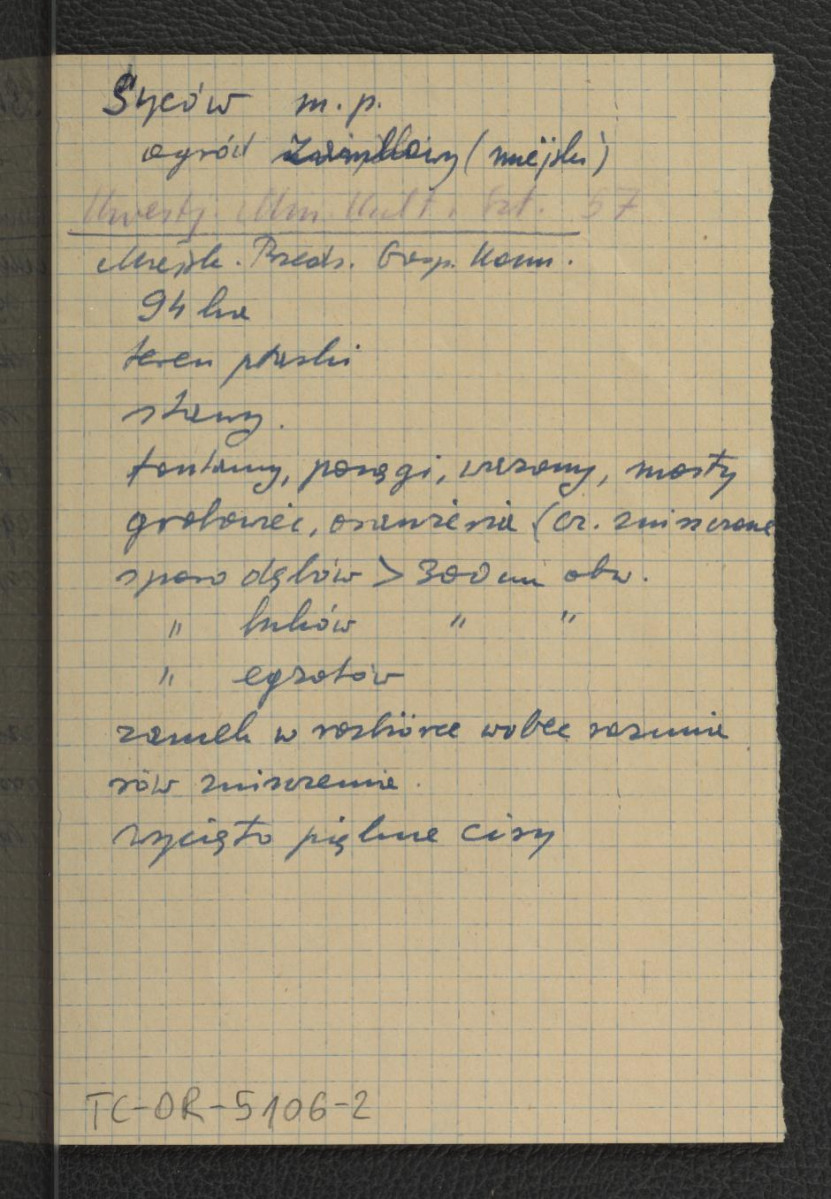 Syców m. p.
ogród (miejski)
Kwestj. Min. Kult. Szt. 57
Miejsk. Przeds. Gosp. Kom.
94 ha
teren płaski
stawy.
fontanny, posągi, wazony, mosty
grobowiec, oranżeria (cz. zniszczone
sporo dębów > 300 cm obw.
" buków " "
" egzotów
zamek w rozbiórce wobec rozmia
rów zniszczenia.
wycięto piękne cisy
TC-OR-5106-2